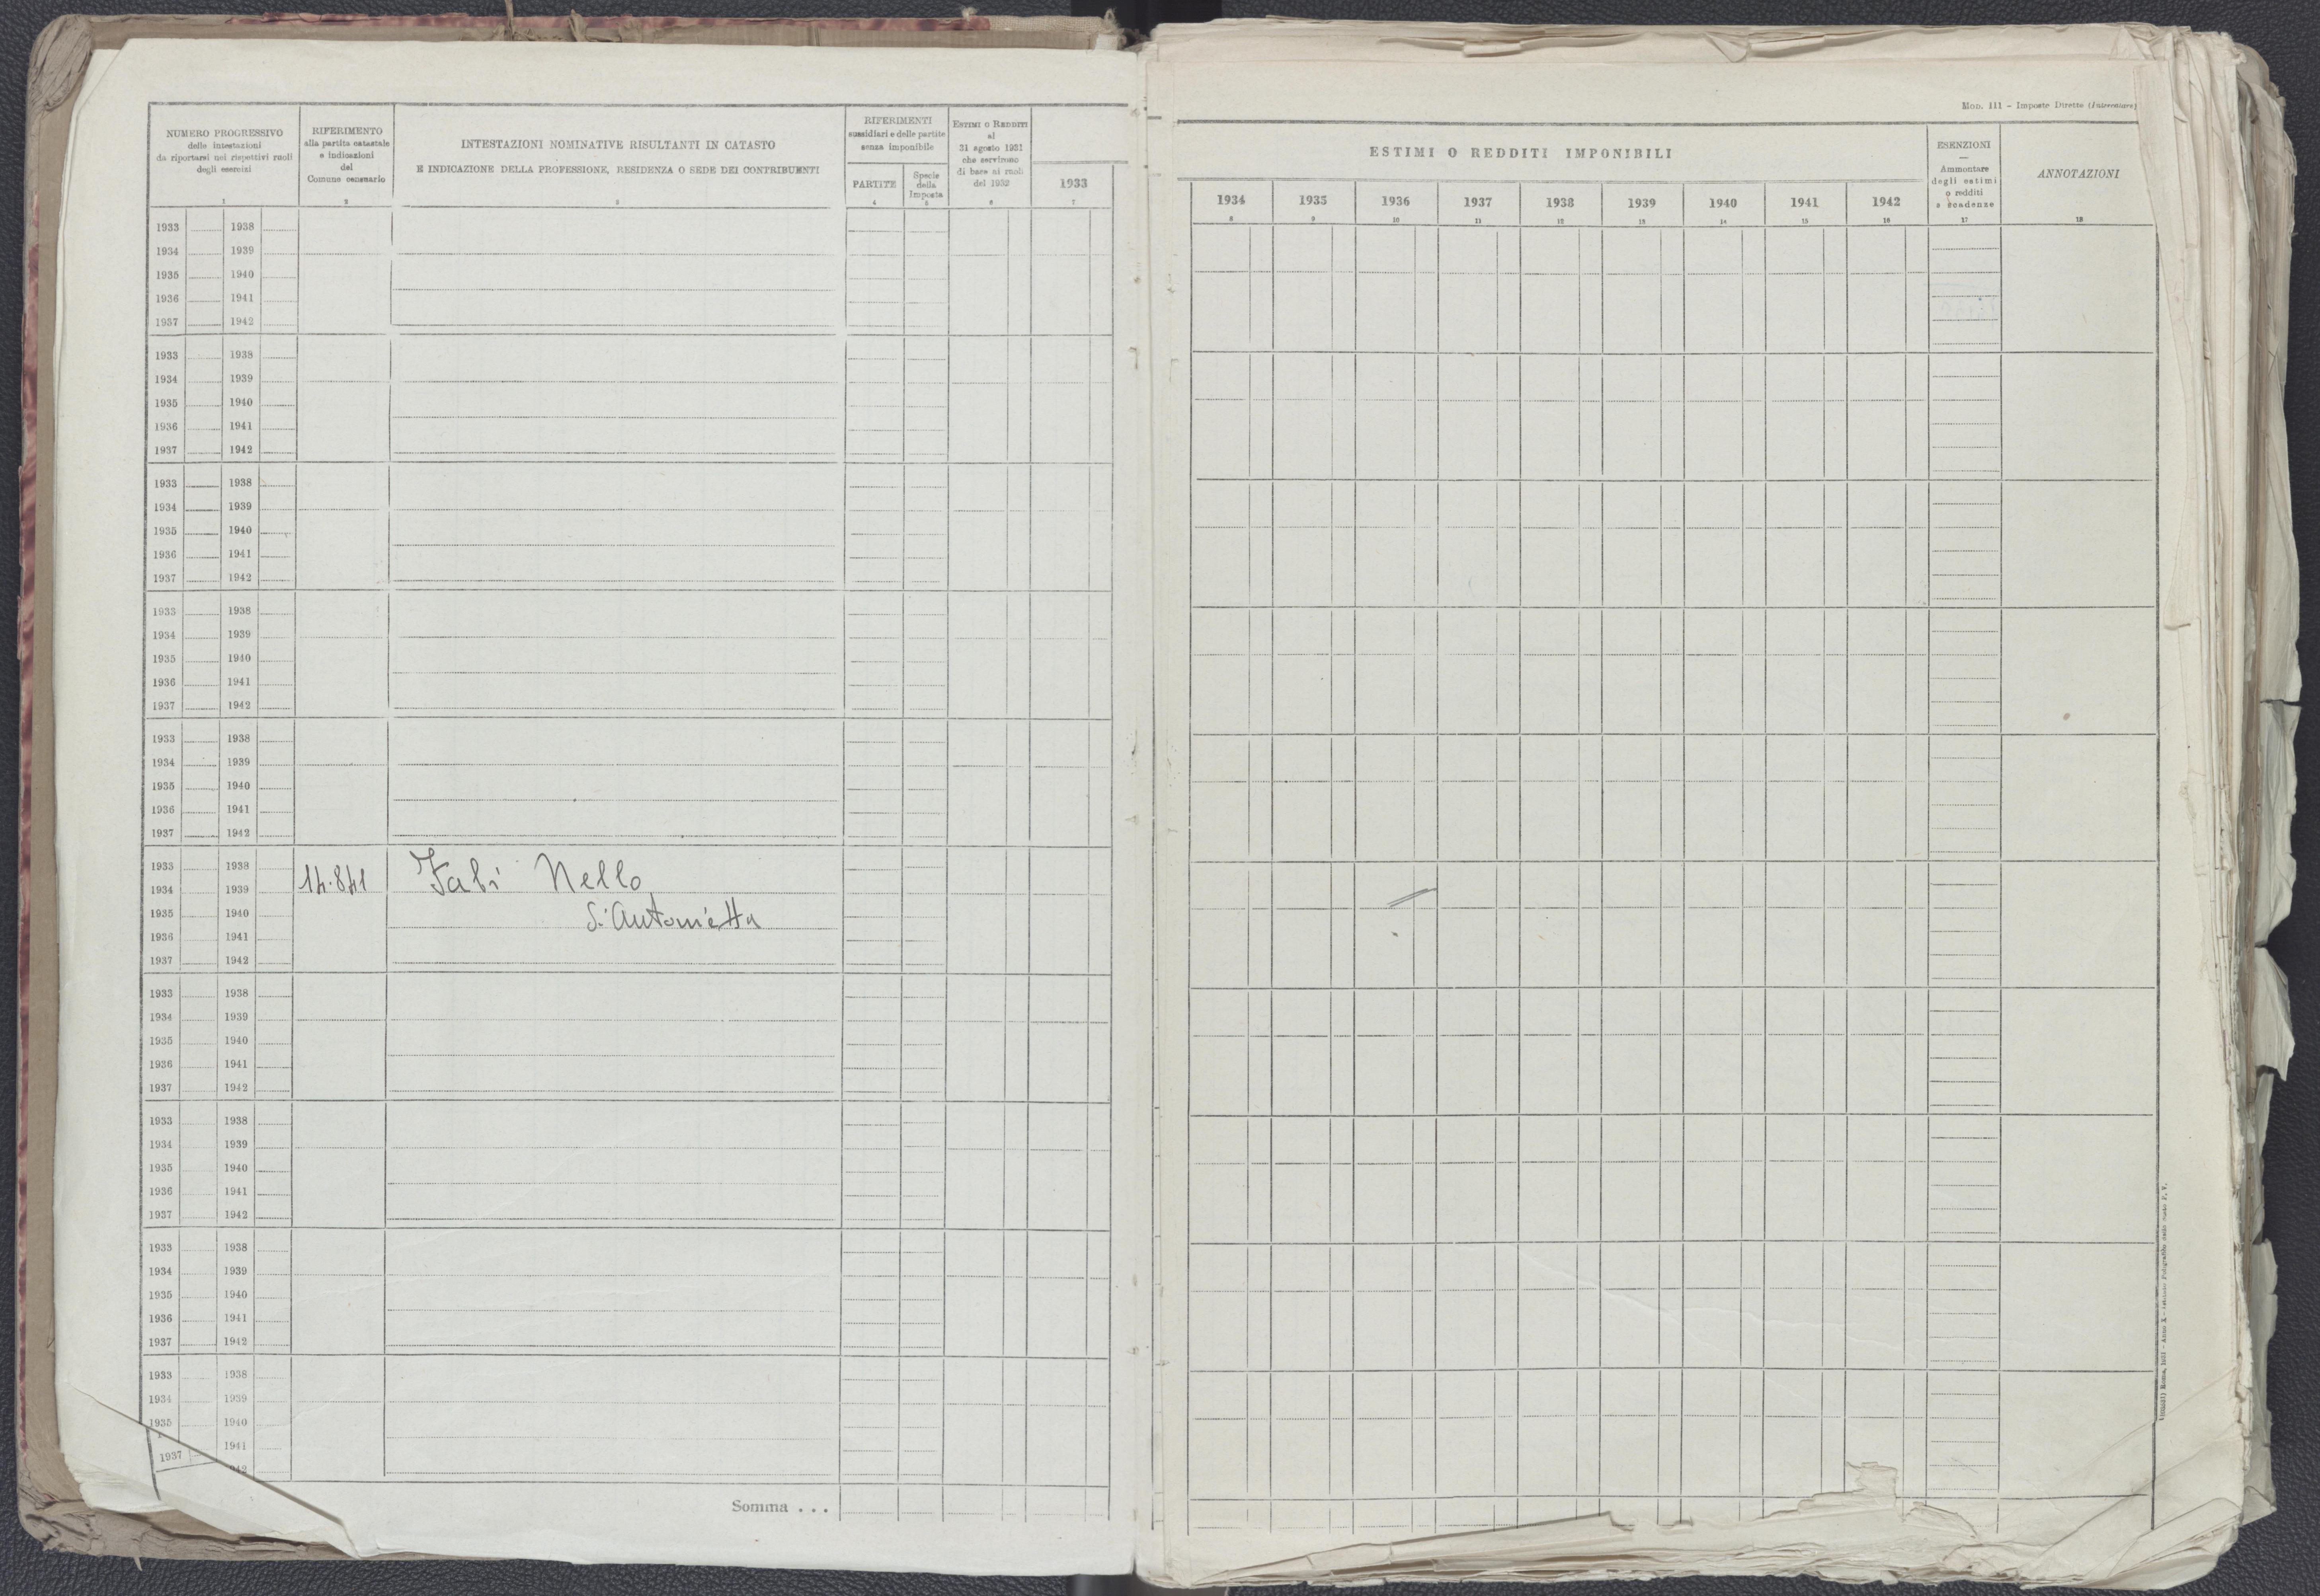 NUMERO PROGRESSIVO
delle intestazioni
da riportarsi nei rispettivi ruoli
degli esercizi
1
RIFERIMENTO
alla partita catastale
e indicazioni
del
Comune censuario
2
INTESTAZIONI NOMINATIVE RISULTANTI IN CATASTO
E INDICAZIONE DELLA PROFESSIONE, RESIDENZA O SEDE DEI CONTRIBUENTI
3
RIFERIMENTI
sussidiari e delle partite
senza imponibile
PARTITE
4
Specie
della
Imposta
5
ESTIMI O REDDITI
al
31 agosto 1931
che servirono
di base ai ruoli
del 1932
6
1933
7
1933 1938
1934 1939
1935 1940
1936 1941
1937 1942
1933 1938
1934 1939
1935 1940
1936 1941
1937 1942
1933 1938
1934 1939
1935 1940
1936 1941
1937 1942
1933 1938
1934 1939
1935 1940
1936 1941
1937 1942
1933 1938
1934 1939
1935 1940
1936 1941
1937 1942
1933 1938
1934 1939
1935 1940
1936 1941
1937 1942
14.841 Fabi Nello
di Antonietta
1933 1938
1934 1939
1935 1940
1936 1941
1937 1942
1933 1938
1934 1939
1935 1940
1936 1941
1937 1942
1933 1938
1934 1939
1935 1940
1936 1941
1937 1942
1933 1938
1934 1939
1935 1940
1941
1937
Somma . . .
MOD. 111 - Imposte Dirette (Intercalare)
ESTIMI O REDDITI IMPONIBILI
1934 1935 1936 1937 1938 1939 1940 1941 1942
8 9 10 11 12 13 14 15 16
ESENZIONI
—
Ammontare
degli estimi
o redditi
e scadenze
17
ANNOTAZIONI
18
Roma, 1931 - Anno X - Istituto Poligrafico dello Stato P. V.